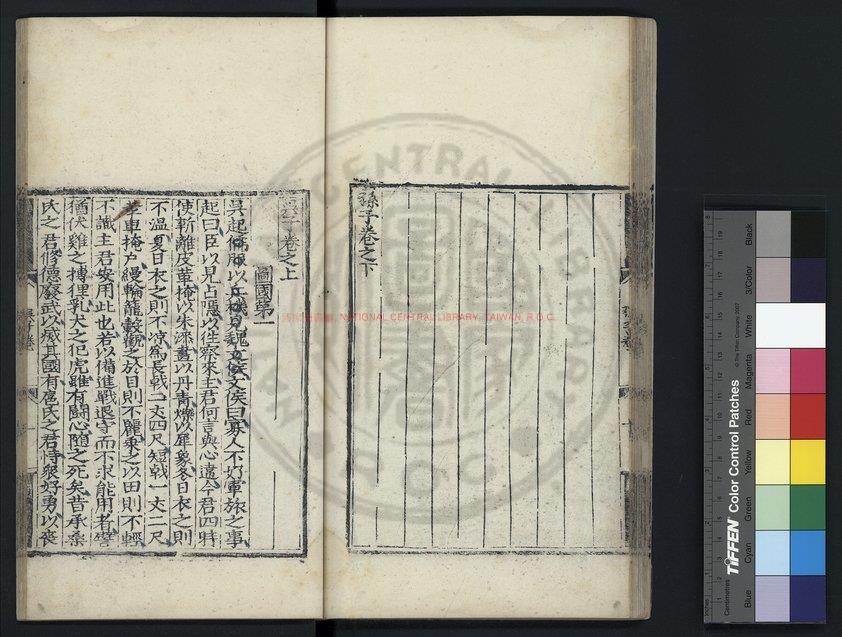 孫子卷之下
吳子卷之上
圖國第一
吳起儒服以兵機見魏文侯文侯曰寡人不好軍旅之事
起曰臣以見占隱以往察來主君何言與心違今君四時
使斬離皮革掩以朱漆畫以丹青爍以犀象冬日衣之則
不溫夏日衣之則不涼為長戟二丈四尺短戟一丈二尺
革車掩戶縵輪籠轂觀之於目則不麗乘之以田則不輕
不識主君安用此也若以備進戰退守而不求能用者譬
猶伏雞之搏狸乳犬之犯虎雖有鬭心隨之死矣昔承桑
氏之君修德廢武以滅其國有扈氏之君恃衆好勇以喪
NATIONAL CENTRAL LIBRARY, TAIWAN, R.O.C.
CENTRAL LIBRARY
TIFFEN Color Control Patches
© The Tiffen Company, 2007
Centimetres
Inches
Blue
Cyan
Green
Yellow
Red
Magenta
White
3/Color
Black